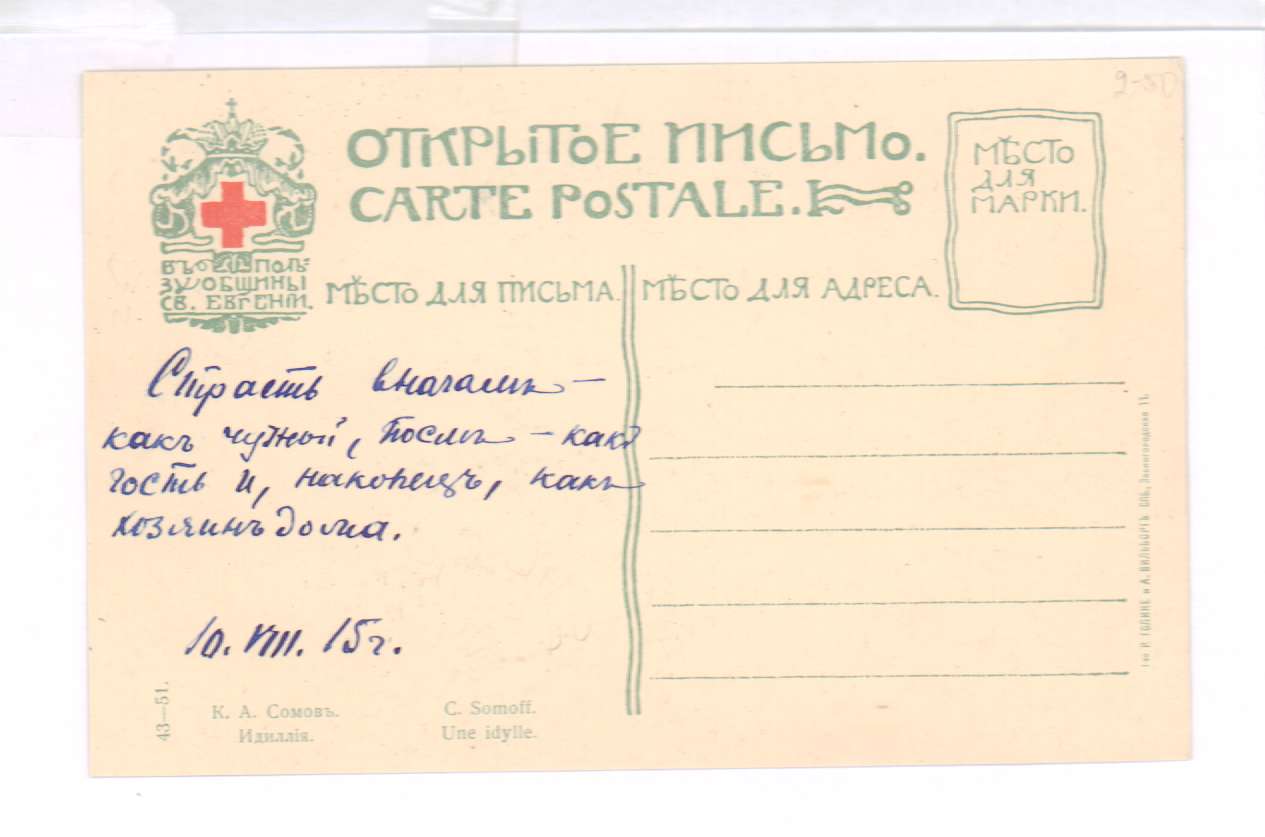 9-50
ОТКРЫТОЕ ПИСЬМО.
CARTE POSTALE.
МѢСТО
ДЛЯ
МАРКИ.
ВЪ ПОЛЬ-
ЗУ ОБЩИНЫ
СВ. ЕВГЕНІИ.
МѢСТО ДЛЯ ПИСЬМА.
МѢСТО ДЛЯ АДРЕСА.
Страсть вначалѣ –
какъ чужой, послѣ – какъ
гость и, наконецъ, какъ
хозяинъ дома.
10. VIII. 15 г.
43—51.
К. А. Сомовъ.
Идиллія.
C. Somoff.
Une idylle.
Р. ГОЛИКЕ и А. ВИЛЬБОРГЪ. СПБ, Звенигородская 11.